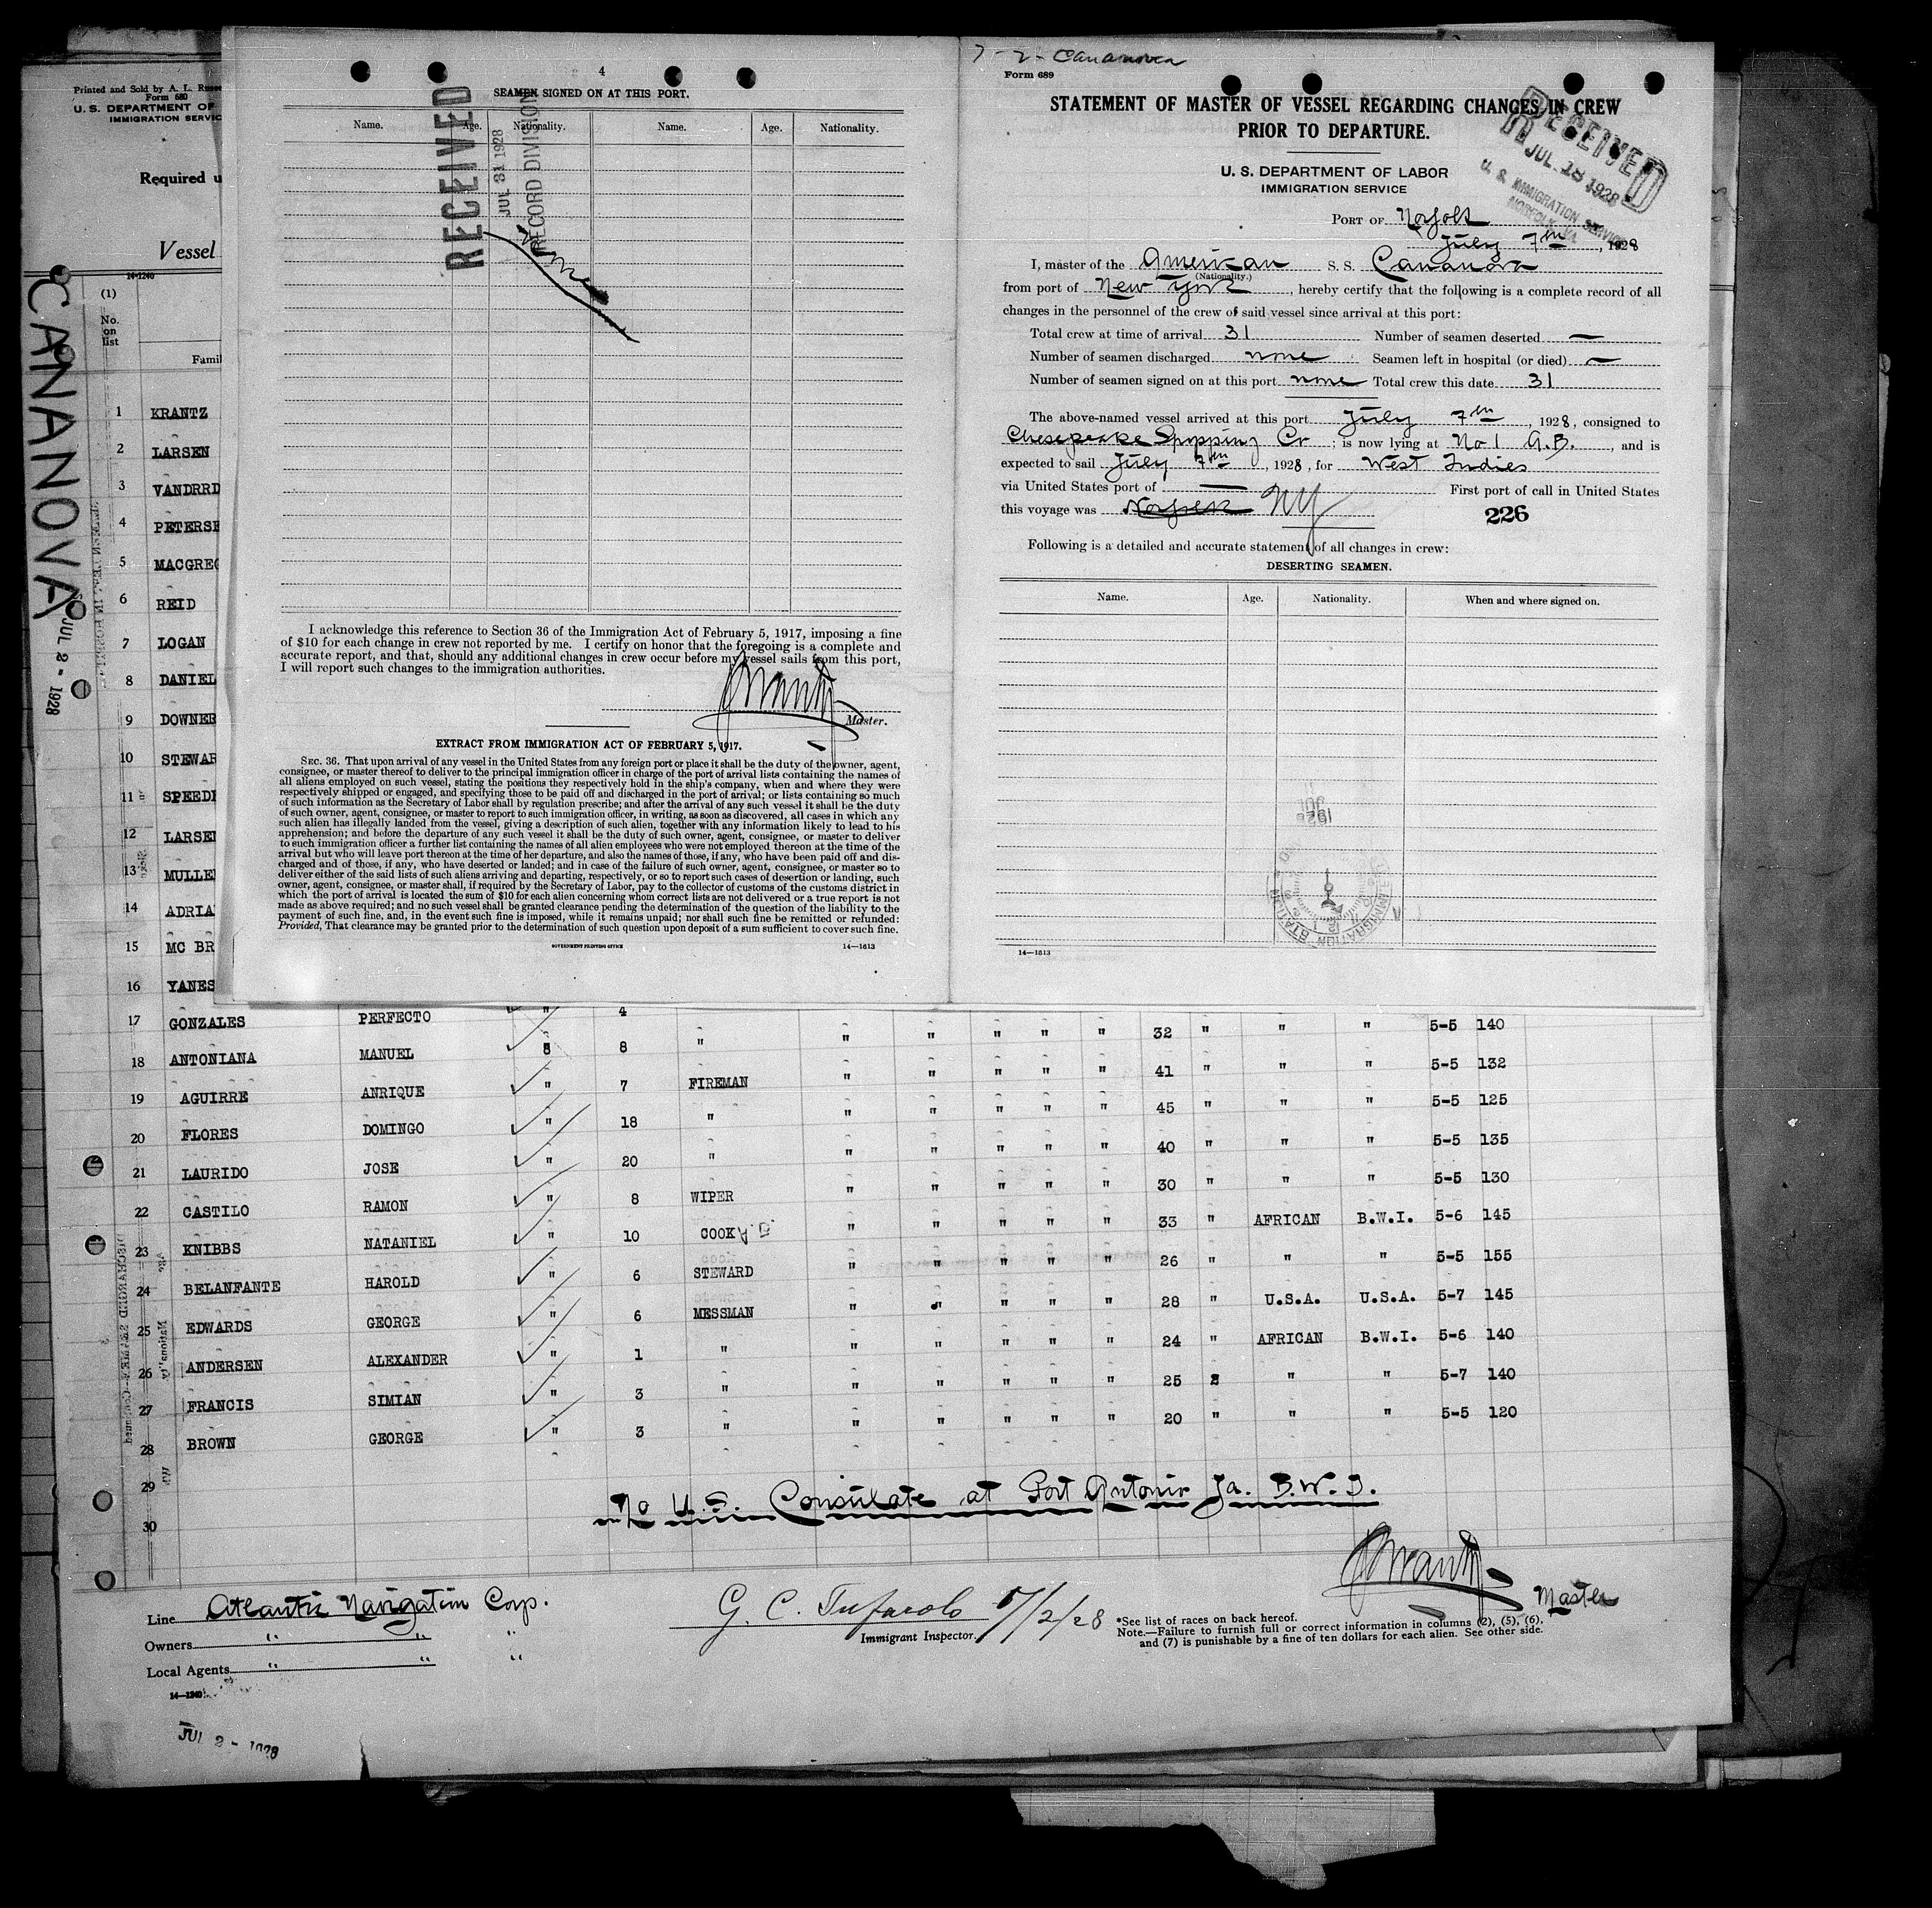 4
SEAMEN SIGNED ON AT THIS PORT.
Name. Age. Nationality. Name. Age. Nationality.
RECEIVED
JUL 31 1928
RECORD DIVISION
None
I acknowledge this reference to Section 36 of the Immigration Act of February 5, 1917, imposing a fine
of $10 for each change in crew not reported by me. I certify on honor that the foregoing is a complete and
accurate report, and that, should any additional changes in crew occur before my vessel sails from this port,
I will report such changes to the immigration authorities.
Master.
EXTRACT FROM IMMIGRATION ACT OF FEBRUARY 5, 1917.
SEC. 36. That upon arrival of any vessel in the United States from any foreign port or place it shall be the duty of the owner, agent,
consignee, or master thereof to deliver to the principal immigration officer in charge of the port of arrival lists containing the names of
all aliens employed on such vessel, stating the positions they respectively hold in the ship's company, when and where they were
respectively shipped or engaged, and specifying those to be paid off and discharged in the port of arrival; or lists containing so much
of such information as the Secretary of Labor shall by regulation prescribe; and after the arrival of any such vessel it shall be the duty
of such owner, agent, consignee, or master to report to such immigration officer, in writing, as soon as discovered, all cases in which any
such alien has illegally landed from the vessel, giving a description of such alien, together with any information likely to lead to his
apprehension; and before the departure of any such vessel it shall be the duty of such owner, agent, consignee, or master to deliver
to such immigration officer a further list containing the names of all alien employees who were not employed thereon at the time of the
arrival but who will leave port thereon at the time of her departure, and also the names of those, if any, who have been paid off and dis-
charged and of those, if any, who have deserted or landed; and in case of the failure of such owner, agent, consignee, or master so to
deliver either of the said lists of such aliens arriving and departing, respectively, or so to report such cases of desertion or landing, such
owner, agent, consignee, or master shall, if required by the Secretary of Labor, pay to the collector of customs of the customs district in
which the port of arrival is located the sum of $10 for each alien concerning whom correct lists are not delivered or a true report is not
made as above required; and no such vessel shall be granted clearance pending the determination of the question of the liability to the
payment of such fine, and, in the event such fine is imposed, while it remains unpaid; nor shall such fine be remitted or refunded:
Provided, That clearance may be granted prior to the determination of such question upon deposit of a sum sufficient to cover such fine.
GOVERNMENT PRINTING OFFICE 14—1613
7-2- Cananova
Form 689
STATEMENT OF MASTER OF VESSEL REGARDING CHANGES IN CREW
PRIOR TO DEPARTURE.
U. S. DEPARTMENT OF LABOR
IMMIGRATION SERVICE
RECEIVED
JUL 18 1928
U. S. IMMIGRATION SERVICE
NORFOLK, VA.
PORT OF Norfolk
July 7th, 1928
I, master of the American S. S. Cananova
(Nationality.)
from port of New York, hereby certify that the following is a complete record of all
changes in the personnel of the crew of said vessel since arrival at this port:
Total crew at time of arrival 31 Number of seamen deserted —
Number of seamen discharged none Seamen left in hospital (or died) —
Number of seamen signed on at this port none Total crew this date 31
The above-named vessel arrived at this port July 7th, 1928, consigned to
Chesepeake Shipping Co; is now lying at No 1 A.B., and is
expected to sail July 7th, 1928, for West Indies
via United States port of — First port of call in United States
this voyage was Norfolk NY
226
Following is a detailed and accurate statement of all changes in crew:
DESERTING SEAMEN.
Name. Age. Nationality. When and where signed on.
14—1613
Printed and Sold by A. L. Russe
Form 680
U. S. DEPARTMENT OF
IMMIGRATION SERVIC
Required u
Vessel
14-1240
(1)
No. on list
Famil
CANANOVA
JUL 2 - 1928
1 KRANTZ
2 LARSEN
3 VANDRRD
4 PETERSE
5 MACGREG
6 REID
7 LOGAN
8 DANIEL
9 DOWNER
10 STEWAR
11 SPEEDI
12 LARSEN
13 MULLE
14 ADRIA
15 MC BR
16 YANES
17 GONZALES PERFECTO " 4 " " " " " " 32 " " " 5-5 140
18 ANTONIANA MANUEL 8 8 " " " " " " 41 " " " 5-5 132
19 AGUIRRE ANRIQUE " 7 FIREMAN " " " " " 45 " " " 5-5 125
20 FLORES DOMINGO " 18 " " " " " " 40 " " " 5-5 135
21 LAURIDO JOSE " 20 " " " " " " 30 " " " 5-5 130
22 CASTILO RAMON " 8 WIPER " " " " " 33 " AFRICAN B.W.I. 5-6 145
23 KNIBBS NATANIEL " 10 COOK " " " " " 26 " " " 5-5 155
24 BELANFANTE HAROLD " 6 STEWARD " " " " " 28 " U.S.A. U.S.A. 5-7 145
25 EDWARDS GEORGE " 6 MESSMAN " " " " " 24 " AFRICAN B.W.I. 5-6 140
26 ANDERSEN ALEXANDER " 1 " " " " " " 25 " " 5-7 140
27 FRANCIS SIMIAN " 3 " " " " " " 20 " " " 5-5 120
28 BROWN GEORGE " 3 "
29
30
No U.S. Consulate at Port Antonio Ja. B.W.I.
Master
Line Atlantic Navigation Corp.
Owners " " "
Local Agents " " "
14—1240
G. C. Tufarolo 7/2/28
Immigrant Inspector.
*See list of races on back hereof.
Note.—Failure to furnish full or correct information in columns (2), (5), (6),
and (7) is punishable by a fine of ten dollars for each alien. See other side.
JUL 2 - 1928